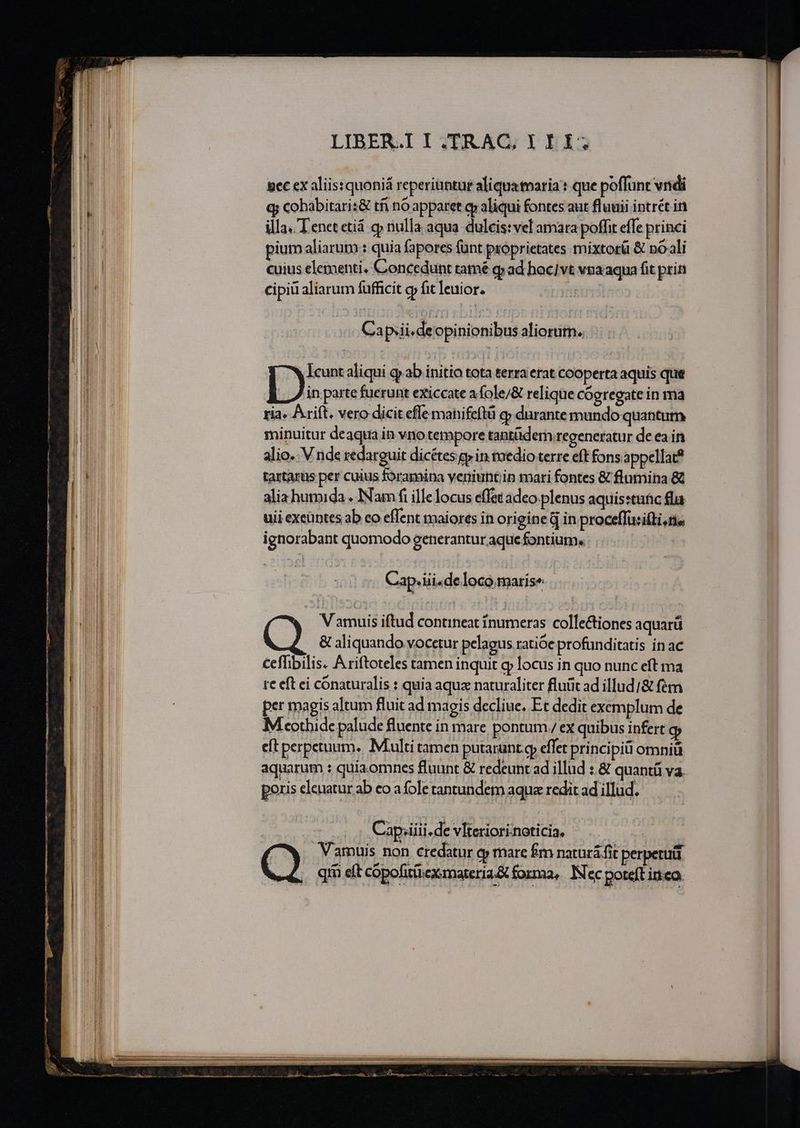 LIBER.I I .TRAC. I I I.
nec ex aliis:quoniã reperiuntur aliqua maria: que poſſunt vndi
qȝ cohabitari:& tñ nõ apparet ꝙ aliqui fontes aut fluuii intrẽt in
illa. Tenet etiã ꝙ nulla aqua dulcis: vel amara poſſit eſſe princi
pium aliarum: quia ſapores ſunt proprietates mixtorũ & nõ ali
cuius elementi. Concedunt tamẽ ꝙ ad hoc/vt vna aqua ſit prin
cipiũ aliarum ſufficit ꝙ ſit leuior.
Cap.ii.de opinionibus aliorum.
DIcunt aliqui ꝙ ab initio tota terra erat cooperta aquis que
in parte fuerunt exiccate a ſole/& relique cõgregate in ma
ria. Ariſt. vero dicit eſſe manifeſtũ ꝙ durante mundo quantum
minuitur de aqua in vno tempore tantũdem regeneratur de ea in
alio. Vnde redarguit dicẽtes ꝙ in medio terre eſt fons appellatꝰ
tartarus per cuius foramina veniunt in mari fontes & flumina &
alia humida. Nam ſi ille locus eſſet adeo plenus aquis:tunc flu
uii exeũntes ab eo eſſent maiores in origine q̃ in proceſſu:iſti.n.
ignorabant quomodo generantur aque fontium.
Cap.iii.de loco maris.
QVamuis iſtud contineat ĩnumeras collectiones aquarũ
& aliquando vocetur pelagus ratiõe profunditatis in ac
ceſſibilis. Ariſtoteles tamen inquit ꝙ locus in quo nunc eſt ma
re eſt ei cõnaturalis: quia aquæ naturaliter fluũt ad illud/& ſem
per magis altum fluit ad magis decliue. Et dedit exemplum de
Meothide palude fluente in mare pontum/ex quibus infert ꝙ
eſt perpetuum. Multi tamen putarunt ꝙ eſſet principiũ omniũ
aquarum: quia omnes fluunt & redeunt ad illud: & quantũ va
poris eleuatur ab eo a ſole tantundem aquæ redit ad illud.
Cap.iiii.de vlteriori noticia.
QVamuis non credatur ꝙ mare ſm̃ naturã ſit perpetuũ
qm̃ eſt cõpoſitũ ex materia & forma. Nec poteſt in eo